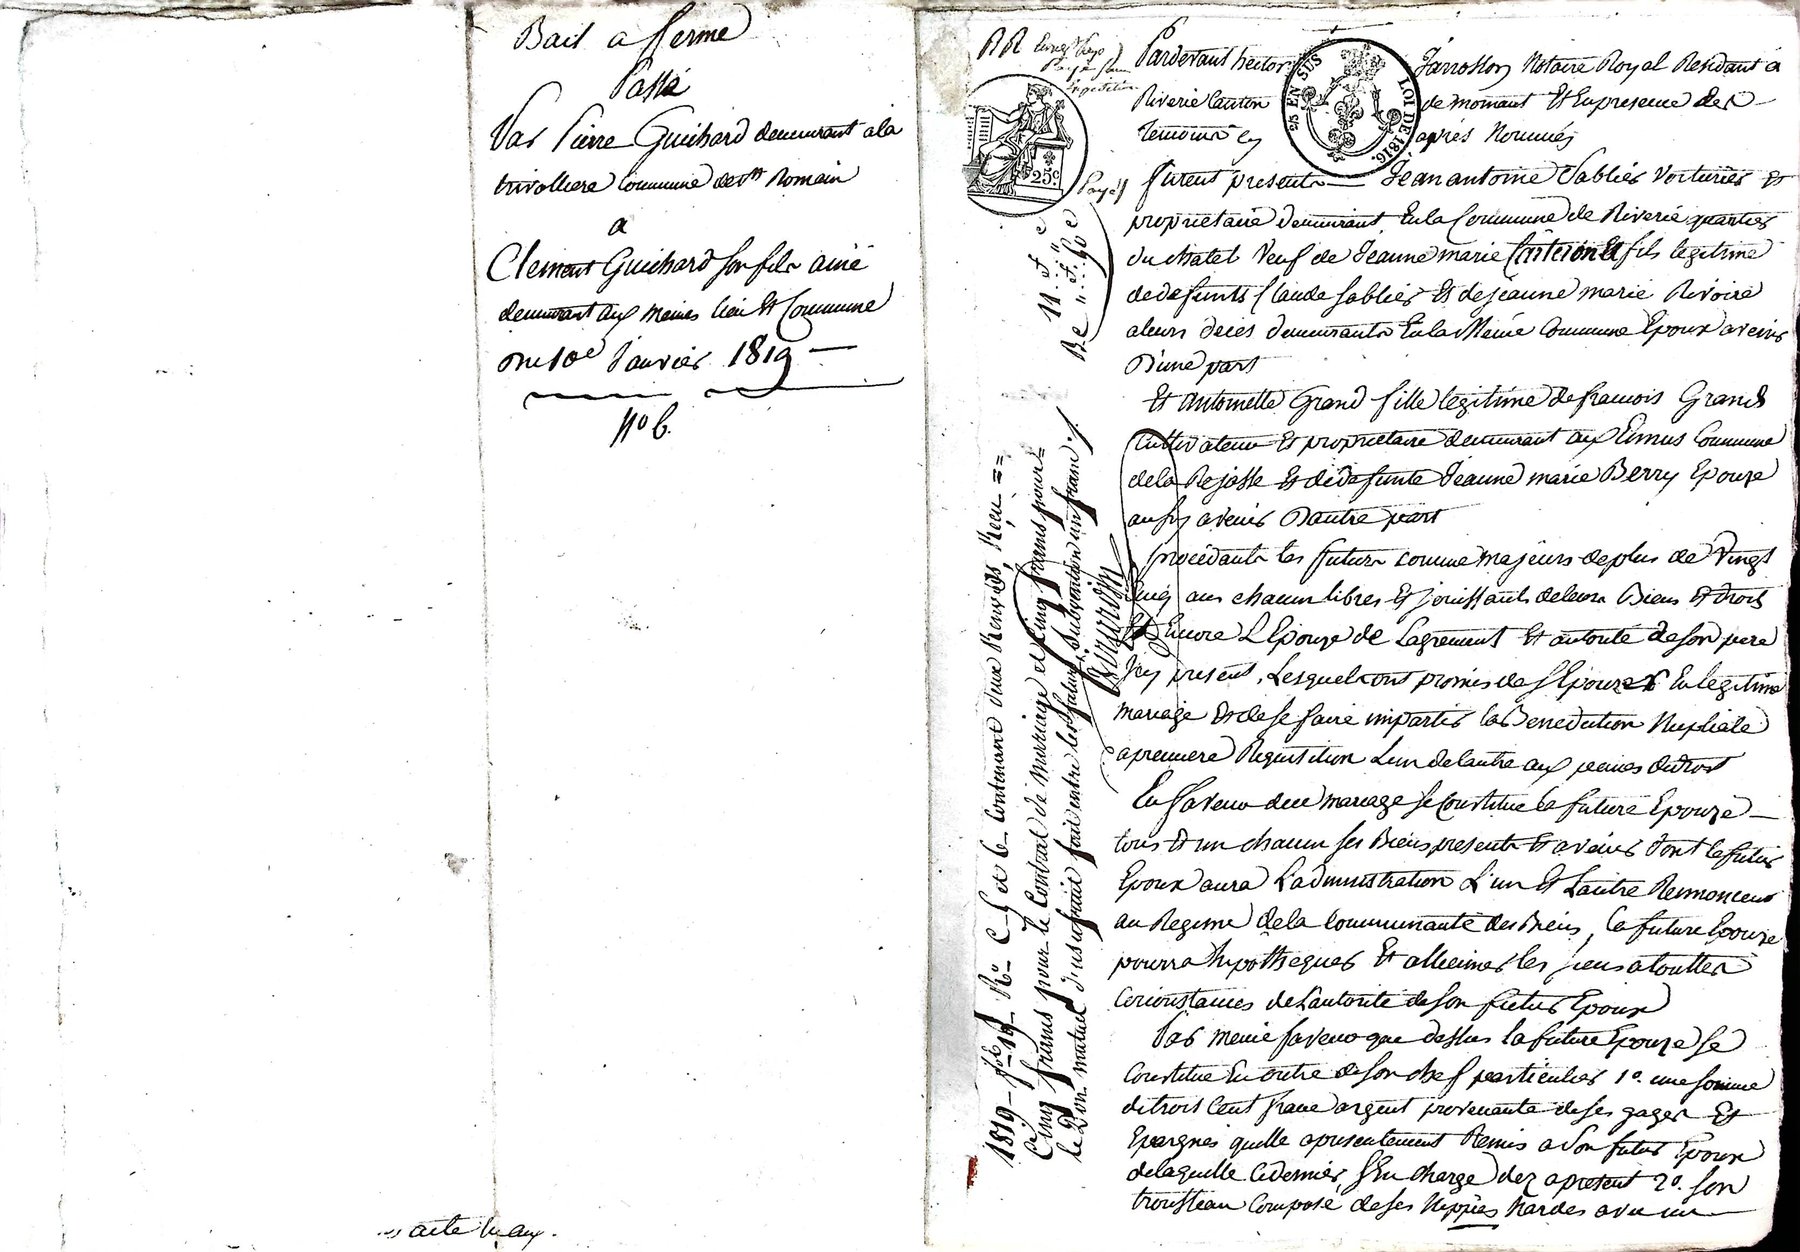 Bail a fferme
Passé
Par Pierre Guichard demeurant a la
trivolliere Commune de st Romain
a
Clement Guichard son fils ainé
demeurant aux memes lieu Et Commune
Du 10e Janvier 1819
No 6.
acte
RR
Pardevant hector Jarrosson Notaire Royal Residant a
Riverie Canton de mornant Et En presence des
temoins cy après Nommés
furent presents Jean antoine Sablier Voiturier Et
proprietaire demeurant En la Commune de Riverie quartier
du chatel Veuf de Jeanne marie Et fils legitime
de defunts Claude Sablier Et de jeanne marie Rivoire
a leurs decès demeurants En la Meme Commune Epoux avenir
D'une part
Et Antoinette Grand fille legitime de francois Grand
Cultivateur Et proprietaire demeurant aux Commune
de la Rejasse Et de defunte Jeanne marie Berry Epouze
aussy avenir D'autre part
procedants les futurs comme majeurs de plus de Vingt
Cinq ans chacun libres Et jouissants de leurs Biens Et droits
Et Encore L'Epouze de Lagrement Et autorité de son pere
Icy present, Lesquels ont promis de s'Epouzer En legitime
mariage Et de se faire impartir la Benediction Nuptiale
a premiere Requisition L'un de lautre aux peines du droit
En faveur de ce mariage se Constitue la future Epouze
tous Et un chacun ses Biens presents Et avenirs dont le futur
Epoux aura L'administration L'un Et Lautre Rennoncent
au Regime de la Communauté des Biens, la future Epouze
pourra hypothequer Et allieiner les siens a touttes
circonstances de L'autorité de son futur Epoux
Par meme faveur que dessus la future Epouze se
Constitue En outre de son chef particulier 1o. une somme
de trois Cent franc argent provenante de ses gages Et
Epargnes quelle a presentement Remis a Son futur Epoux
de laquelle Ce dernier S'En charge dez a present 2o. son
trousseau Composé de ses Nippes hardes avec un
25c
2/5 EN SUS
LOI DE 1816.
Payé
11. f. c
Be ". f. 60 c
1819 fo 19 Ro C 5 et 6 Contenant deux Renvois, Reçu
Cinq francs pour le Contrat de Mariage et Cinq francs pour
le Don mutuel d'usufruit fait entre les futurs, Subvention un franc